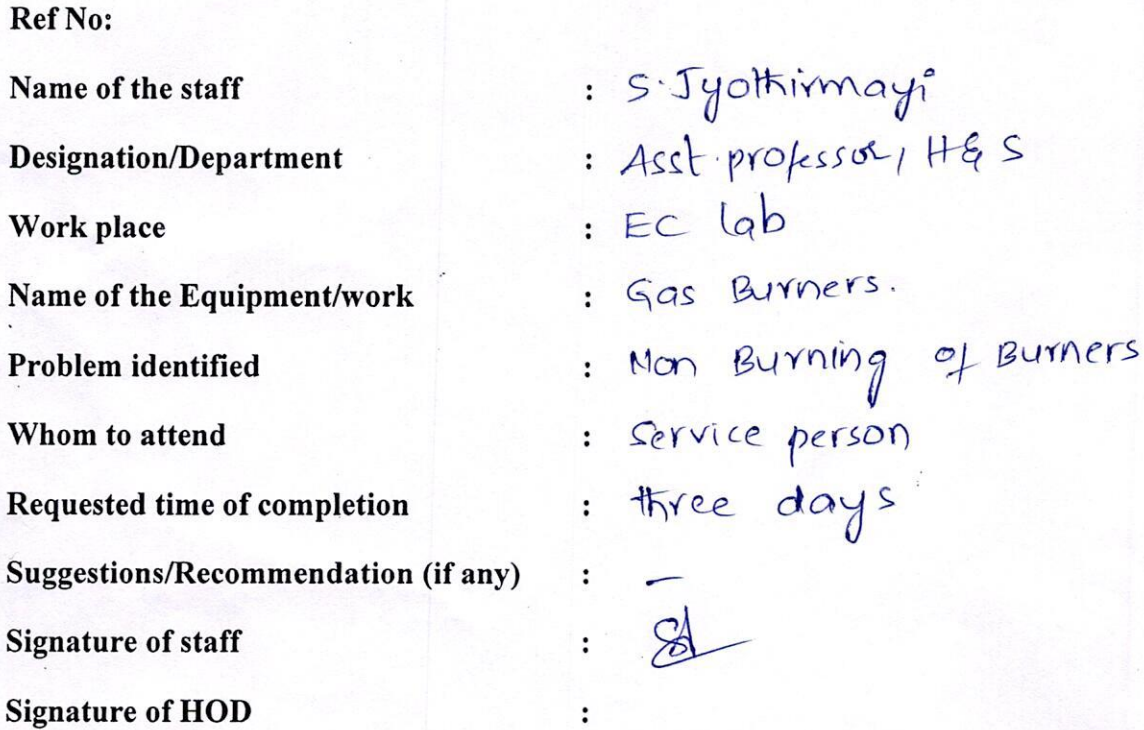 Ref No:
Name of the staff : S. Jyothirmayi
Designation/Department : Asst. professor, H & S
Work place : EC lab
Name of the Equipment/work : Gas Burners.
Problem identified : Non Burning of Burners
Whom to attend : Service person
Requested time of completion : three days
Suggestions/Recommendation (if any) : —
Signature of staff :
Signature of HOD :